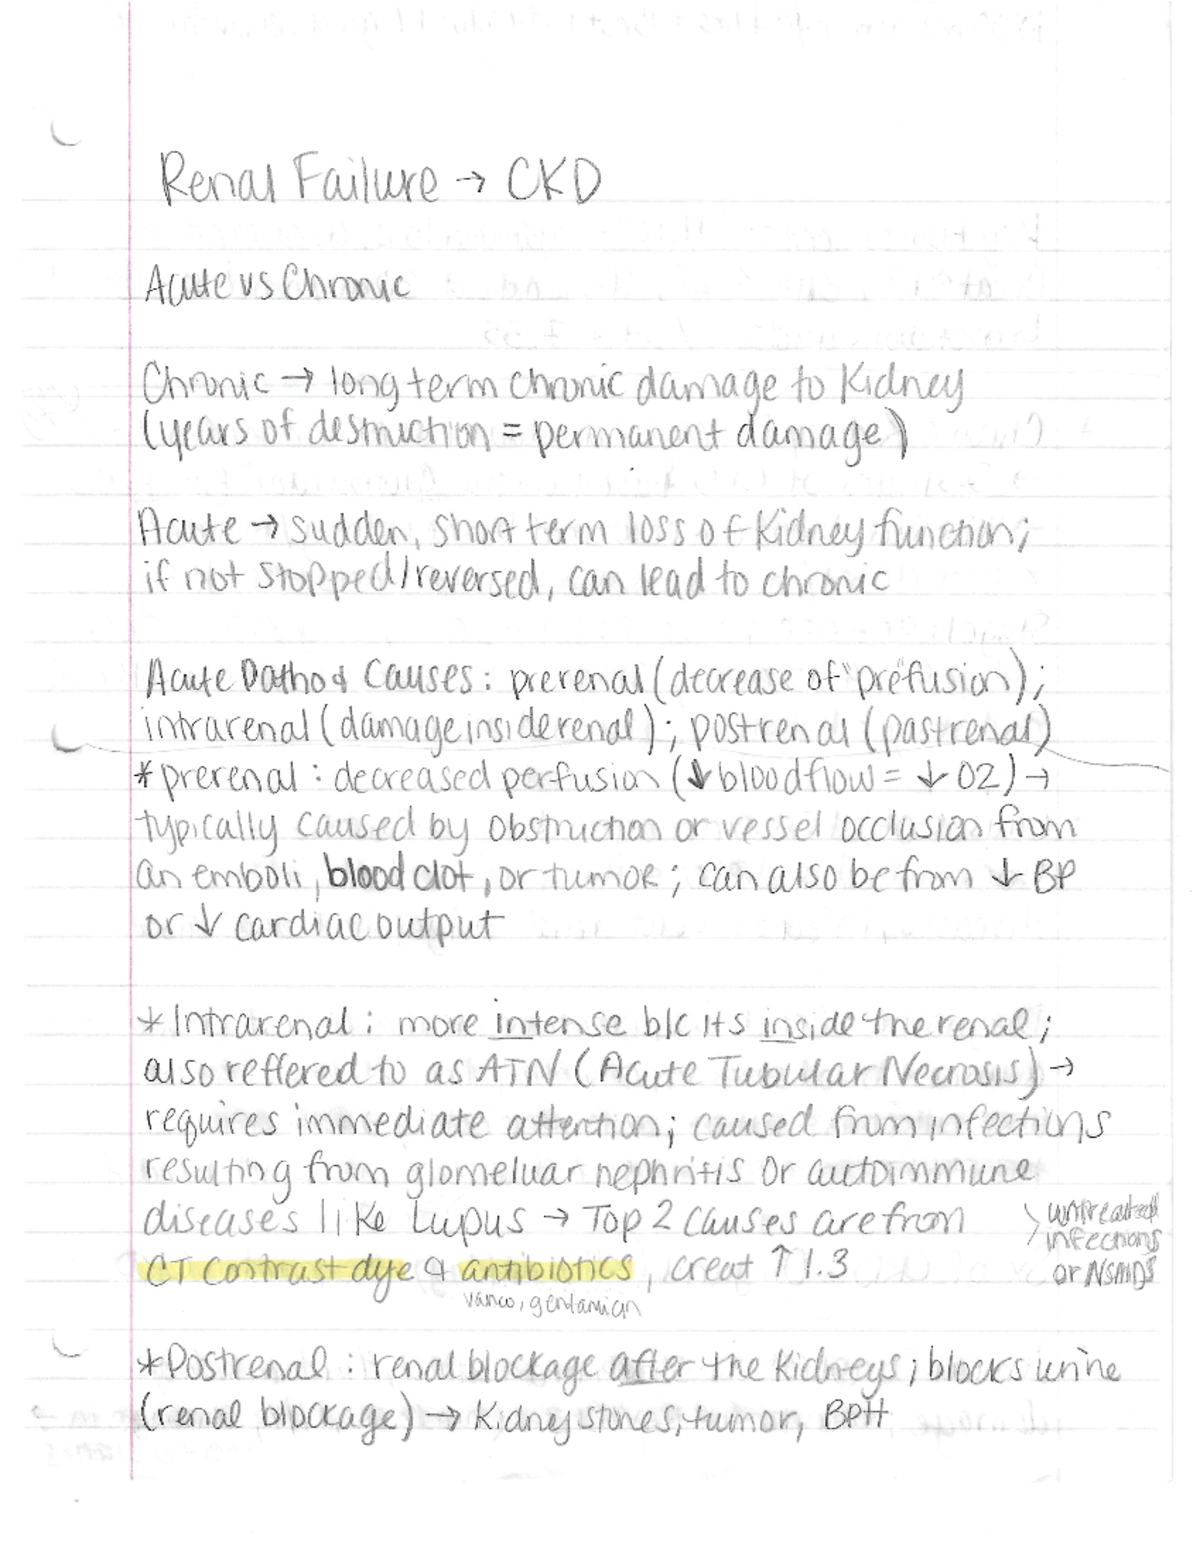 Renal Failure → CKD
Acute vs Chronic
Chronic → long term chronic damage to Kidney
(years of destruction = permanent damage)
Acute → sudden, short term loss of Kidney function;
if not stopped/reversed, can lead to chronic
Acute Patho & Causes: prerenal (decrease of "prefusion);
intrarenal (damage inside renal); postrenal (past renal)
*prerenal: decreased perfusion (↓ blood flow = ↓ O2) →
typically caused by obstruction or vessel occlusion from
an emboli, blood clot, or tumor; can also be from ↓ BP
or ↓ cardiac output
*Intrarenal: more intense b/c its inside the renal;
also reffered to as ATN (Acute Tubular Necrosis) →
requires immediate attention; caused from infections
resulting from glomeluar nephritis or autoimmune
diseases like Lupus → Top 2 causes are from
untreated
infections
or NSAIDS
CT contrast dye & antibiotics, creat ↑ 1.3
vanco, gentamian
*Postrenal: renal blockage after the Kidneys; blocks urine
(renal blockage) → Kidney stones, tumor, BPH